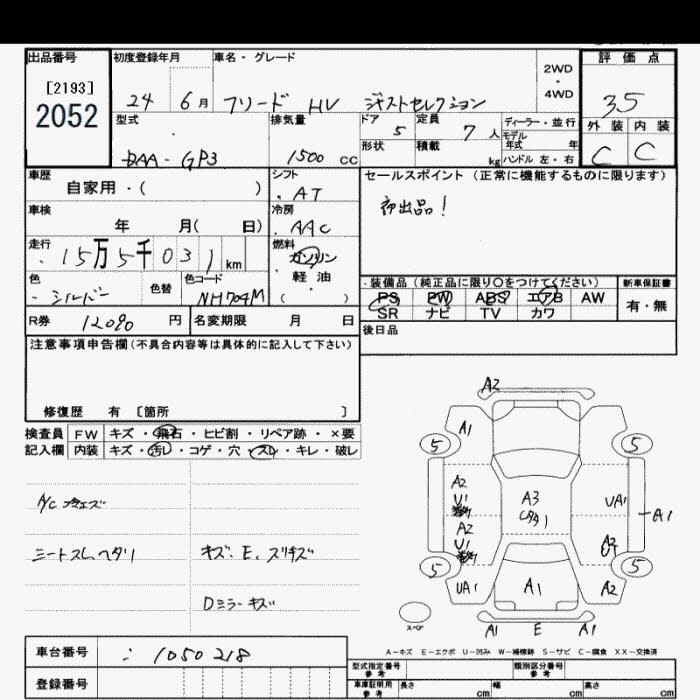 出品番号 初度登録年月 車名・グレード 評価点
[2193]
2052
24 6月 フリード HV ジャストセレクション
2WD
・
4WD
3.5
型式 排気量 ドア 定員 ディーラー・並行 外装 内装
DAA-GP3 1500 cc 5 7人 モデル年式 年 C C
形状 積載 kg ハンドル 左・右
車歴 シフト セールスポイント (正常に機能するものに限ります)
自家用・( ) AT 初出品!
車検 冷房
年 月( 日) AAC
走行 燃料
15万5千031 km ガソリン
軽・油
( )
色 色替 色コード
シルバー NH704M
装備品 (純正品に限り○をつけてください) 新車保証書
PS PW ABS エアB AW 有・無
SR ナビ TV カワ
R券 12090 円 名変期限 月 日
後日品
注意事項申告欄(不具合内容等は具体的に記入して下さい)
修復歴 有 [箇所 ]
検査員 FW キズ・飛石・ヒビ割・リペア跡・×要
記入欄 内装 キズ・汚レ・コゲ・穴・スレ・キレ・破レ
A/C
シートスレ、ヘタリ キズ、E、スリキズ
Dミラーキズ
A2
A1
5 5
A2 A3 UA1
U1
A1
A2 A2
U1
5 5
UA1 A1 A2
スペア
A1 E A1
A-キズ E-エクボ U-凹み W-補修跡 S-サビ C-腐食 XX-交換済
車台番号 1050218
登録番号
型式指定番号 参考 類別区分番号 参考
車庫証明用 参考 長さ cm 幅 cm 高さ cm